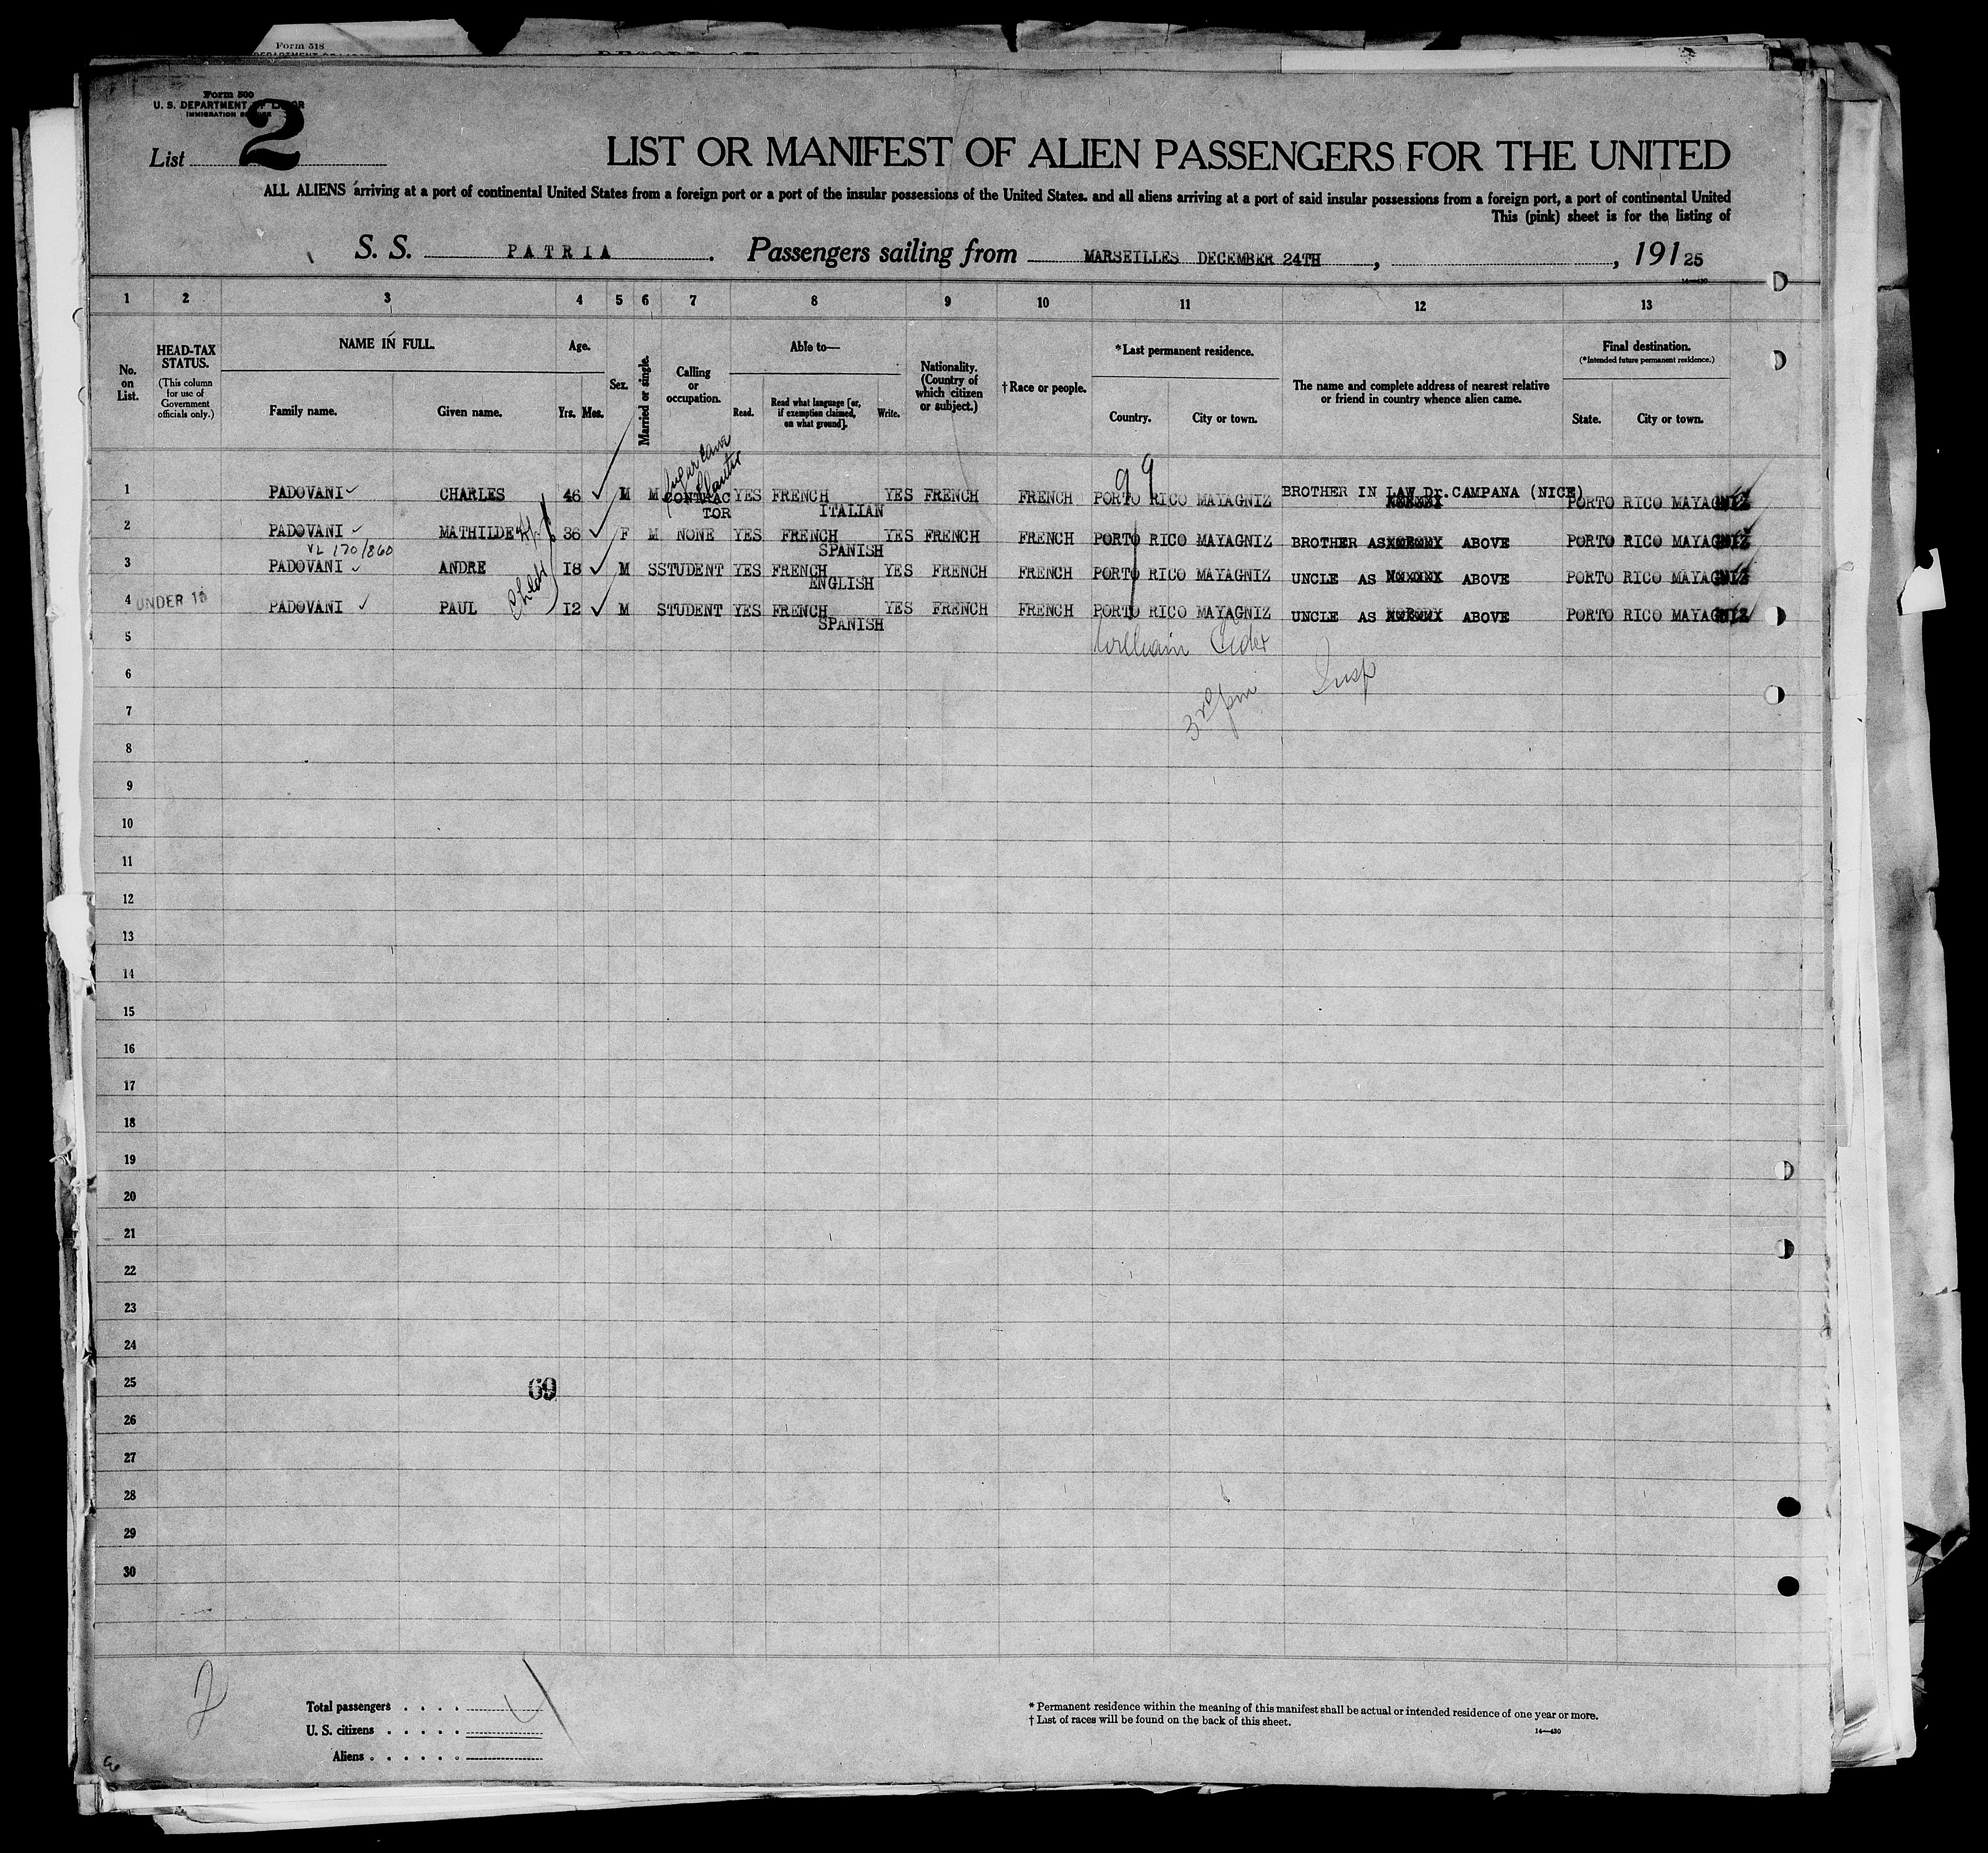 Form 518
Form 500
U. S. DEPARTMENT OF LABOR
IMMIGRATION SERVICE
List 2
LIST OR MANIFEST OF ALIEN PASSENGERS FOR THE UNITED
ALL ALIENS arriving at a port of continental United States from a foreign port or a port of the insular possessions of the United States, and all aliens arriving at a port of said insular possessions from a foreign port, a port of continental United
This (pink) sheet is for the listing of
S. S. PATRIA. Passengers sailing from MARSEILLES DECEMBER 24TH, , 191 25
14—430
1 2 3 4 5 6 7 8 9 10 11 12 13
No. on List.
HEAD-TAX STATUS.
(This column for use of Government officials only.)
NAME IN FULL.
Family name. Given name.
Age.
Yrs. Mos.
Sex.
Married or single.
Calling or occupation.
Able to—
Read. Read what language [or, if exemption claimed, on what ground]. Write.
Nationality. (Country of which citizen or subject.)
† Race or people.
*Last permanent residence.
Country. City or town.
The name and complete address of nearest relative or friend in country whence alien came.
Final destination.
(*Intended future permanent residence.)
State. City or town.
Sugar cane
Planter
99
1 PADOVANI CHARLES 46 M M CONTRAC YES FRENCH YES FRENCH FRENCH PORTO RICO MAYAGNIZ BROTHER IN LAW Dr. CAMPANA (NICE) PORTO RICO MAYAGNIZ
TOR ITALIAN
2 PADOVANI MATHILDE 36 F M NONE YES FRENCH YES FRENCH FRENCH PORTO RICO MAYAGNIZ BROTHER AS ABOVE PORTO RICO MAYAGNIZ
SPANISH
VL 170/860
3 PADOVANI ANDRE 18 M S STUDENT YES FRENCH YES FRENCH FRENCH PORTO RICO MAYAGNIZ UNCLE AS ABOVE PORTO RICO MAYAGNIZ
ENGLISH
4 UNDER 16 PADOVANI PAUL 12 M STUDENT YES FRENCH YES FRENCH FRENCH PORTO RICO MAYAGNIZ UNCLE AS ABOVE PORTO RICO MAYAGNIZ
SPANISH
5
William
6
Insp
7
8
9
10
11
12
13
14
15
16
17
18
19
20
21
22
23
24
25
69
26
27
28
29
30
2
Total passengers . . . . 4
U. S. citizens . . . . .
Aliens . . . . . .
* Permanent residence within the meaning of this manifest shall be actual or intended residence of one year or more.
† List of races will be found on the back of this sheet.
14—430